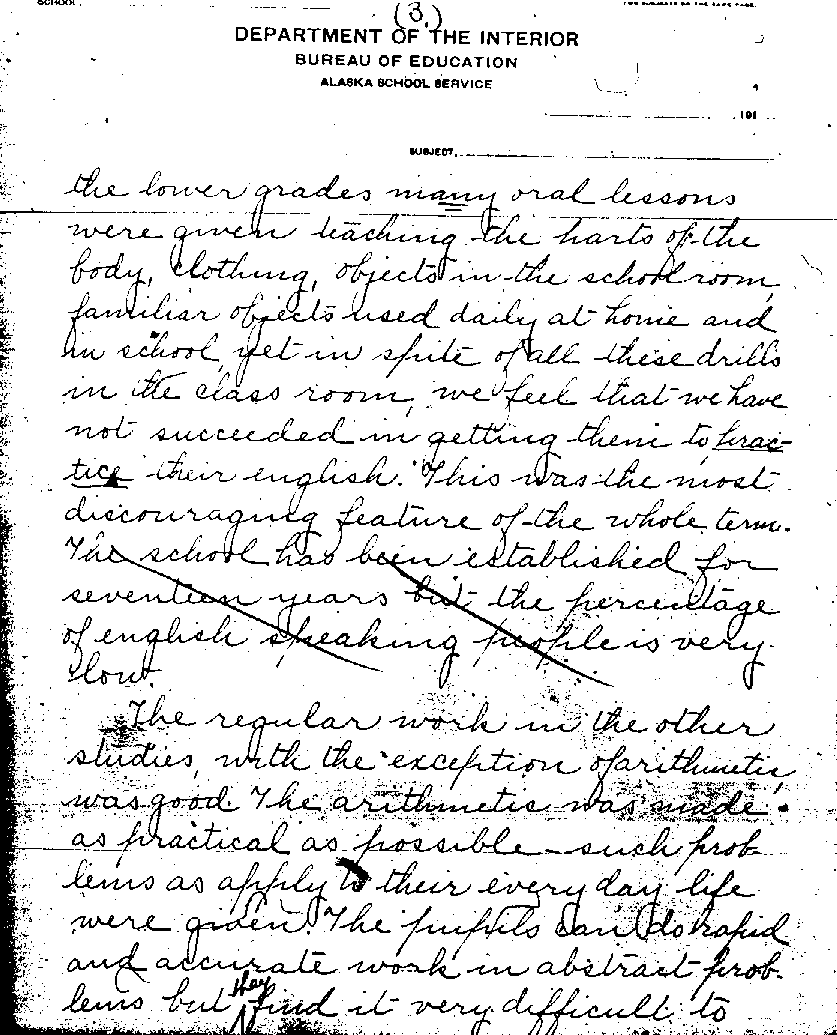 (3.)
DEPARTMENT OF THE INTERIOR
BUREAU OF EDUCATION
ALASKA SCHOOL SERVICE
191
SUBJECT,
the lower grades many oral lessons
were given teaching the parts of the
body, clothing, objects in the school room,
familiar objects used daily at home and
in school, yet in spite of all these drills
in the class room, we feel that we have
not succeeded in getting them to prac-
tice their english. This was the most
discouraging feature of the whole term.
The school has been established for
seventeen years but the percentage
of english speaking people is very
low.
The regular work in the other
studies, with the exception of arithmetic,
was good. The arithmetic was made
as practical as possible - such prob-
lems as apply to their every day life
were given. The pupils can do rapid
and accurate work in abstract prob-
lems but they find it very difficult to